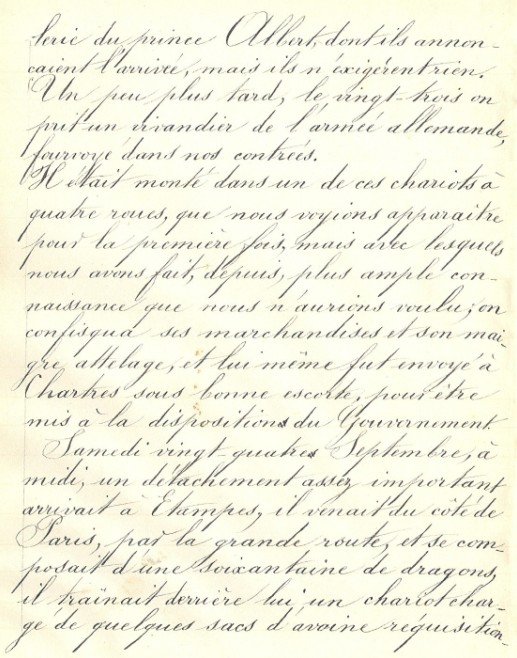 lerie du prince Albert, dont ils annon-
çaient l'arrivée, mais ils n'exigérent rien.
Un peu plus tard, le vingt-trois on
prit un vivandier de l'armée allemande,
fourvoyé dans nos contrées.
Il était monté dans un de ces chariots à
quatre roues, que nous voyions apparaître
pour la première fois, mais avec lesquels
nous avons fait, depuis, plus ample con-
naissance que nous n'aurions voulu; on
confisqua ses marchandises et son mai-
gre attelage, et lui même fut envoyé à
Chartres sous bonne escorte, pour être
mis à la dispositions du Gouvernement.
Samedi vingt-quatre Septembre, à
midi, un détachement assez important
arrivait à Etampes, il venait du côté de
Paris, par la grande route, et se com-
posait d'une soixantaine de dragons,
il traînait derrière lui, un chariot char-
gé de quelques sacs d'avoine réquisition-